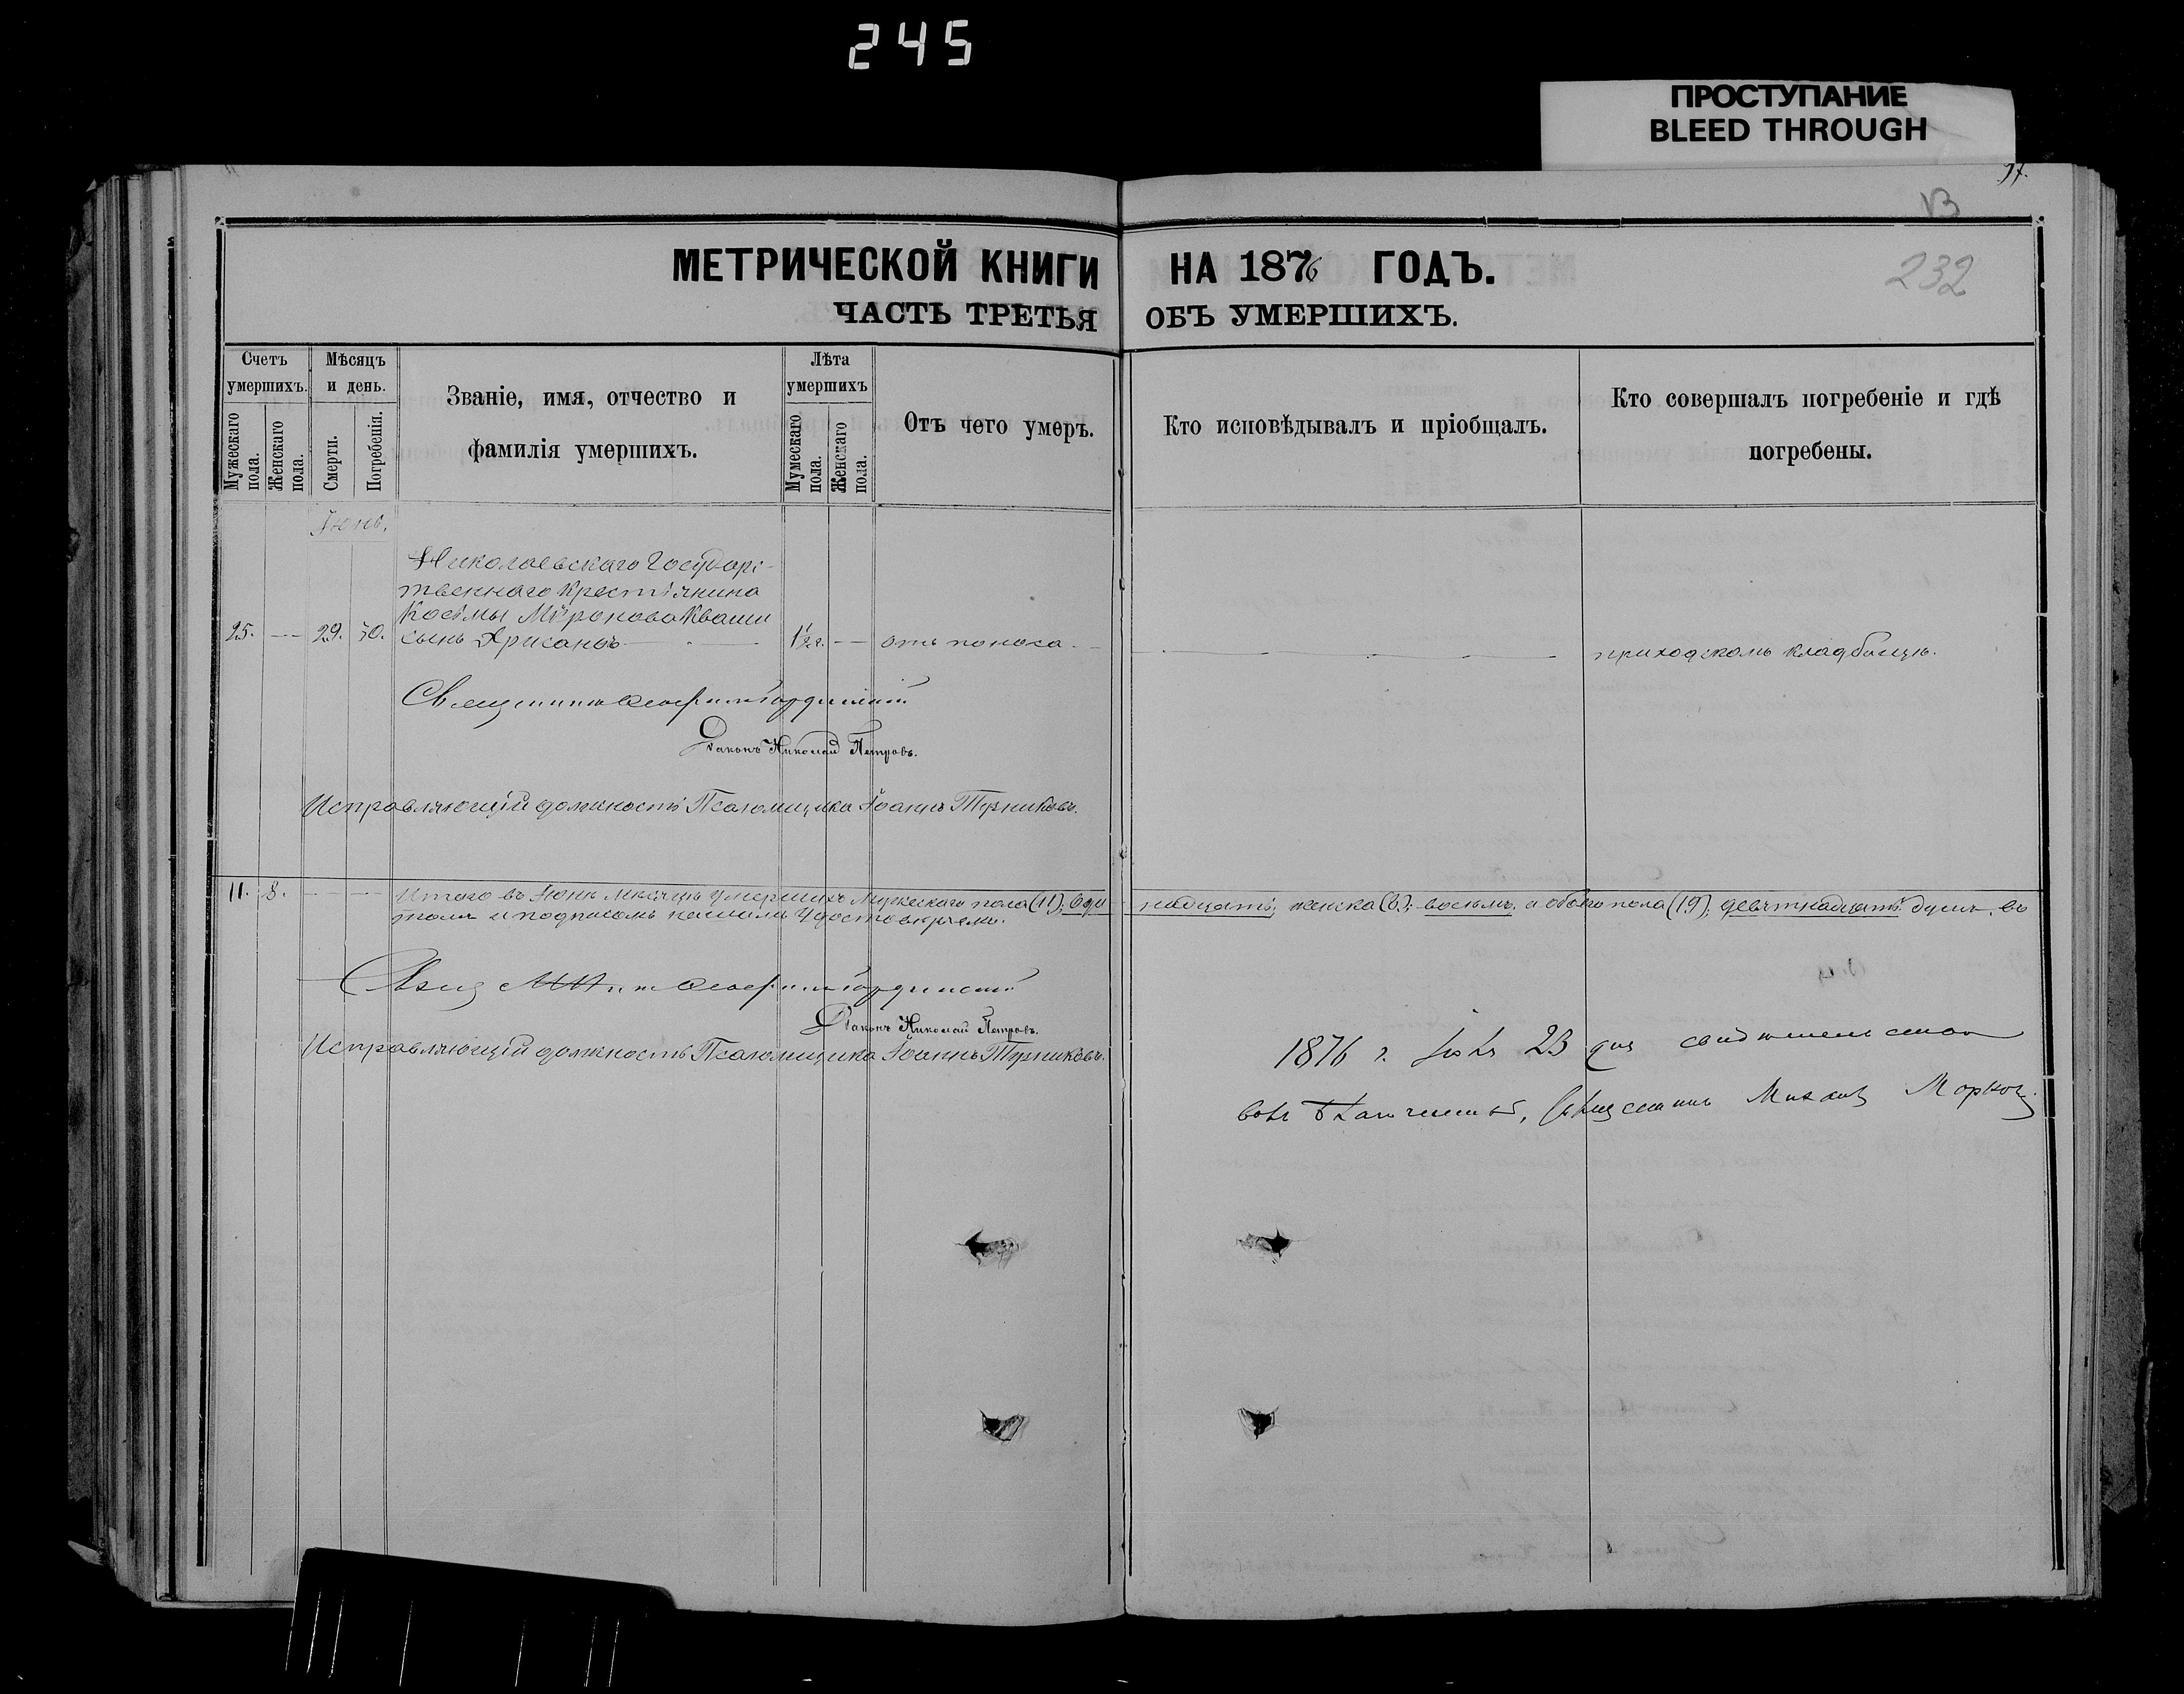 245
ПРОСТУПАНИЕ
BLEED THROUGH
232
МЕТРИЧЕСКОЙ КНИГИ НА 1876 ГОДЪ.
ЧАСТЬ ТРЕТЬЯ ОБЪ УМЕРШИХЪ.
Счетъ умершихъ.
Мужескаго пола.
Женскаго пола.
Мѣсяцъ и день.
Смерти.
Погребенія.
Званіе, имя, отчество и
фамилія умершихъ.
Лѣта умершихъ
Мумескаго пола.
Женскаго пола.
Отъ чего умеръ.
Кто исповѣдывалъ и пріобщалъ.
Кто совершалъ погребеніе и гдѣ
погребены.
Іюнь.
Николаевскаго Государс-
твеннаго Крестьянина
Косьмы Миронова Кваши
25. 29. 30. сынъ 1½ г. отъ поноса. приходскомъ кладбищѣ.
Священникъ
Діаконъ Николай Петровъ.
Исправляющій должность Псаломщика Іоаннъ
11. 8. Итого въ Іюнѣ мѣсяцѣ умершихъ Мужескаго пола (11), Оди
надцать, женска (8), восемь, а обоего пола (19), девятнадцать душъ, въ
подписомъ нашимъ удостовѣряемъ.
Діаконъ Николай Петровъ.
Исправляющій должность Псаломщика Іоаннъ
1876 г. 23 дня